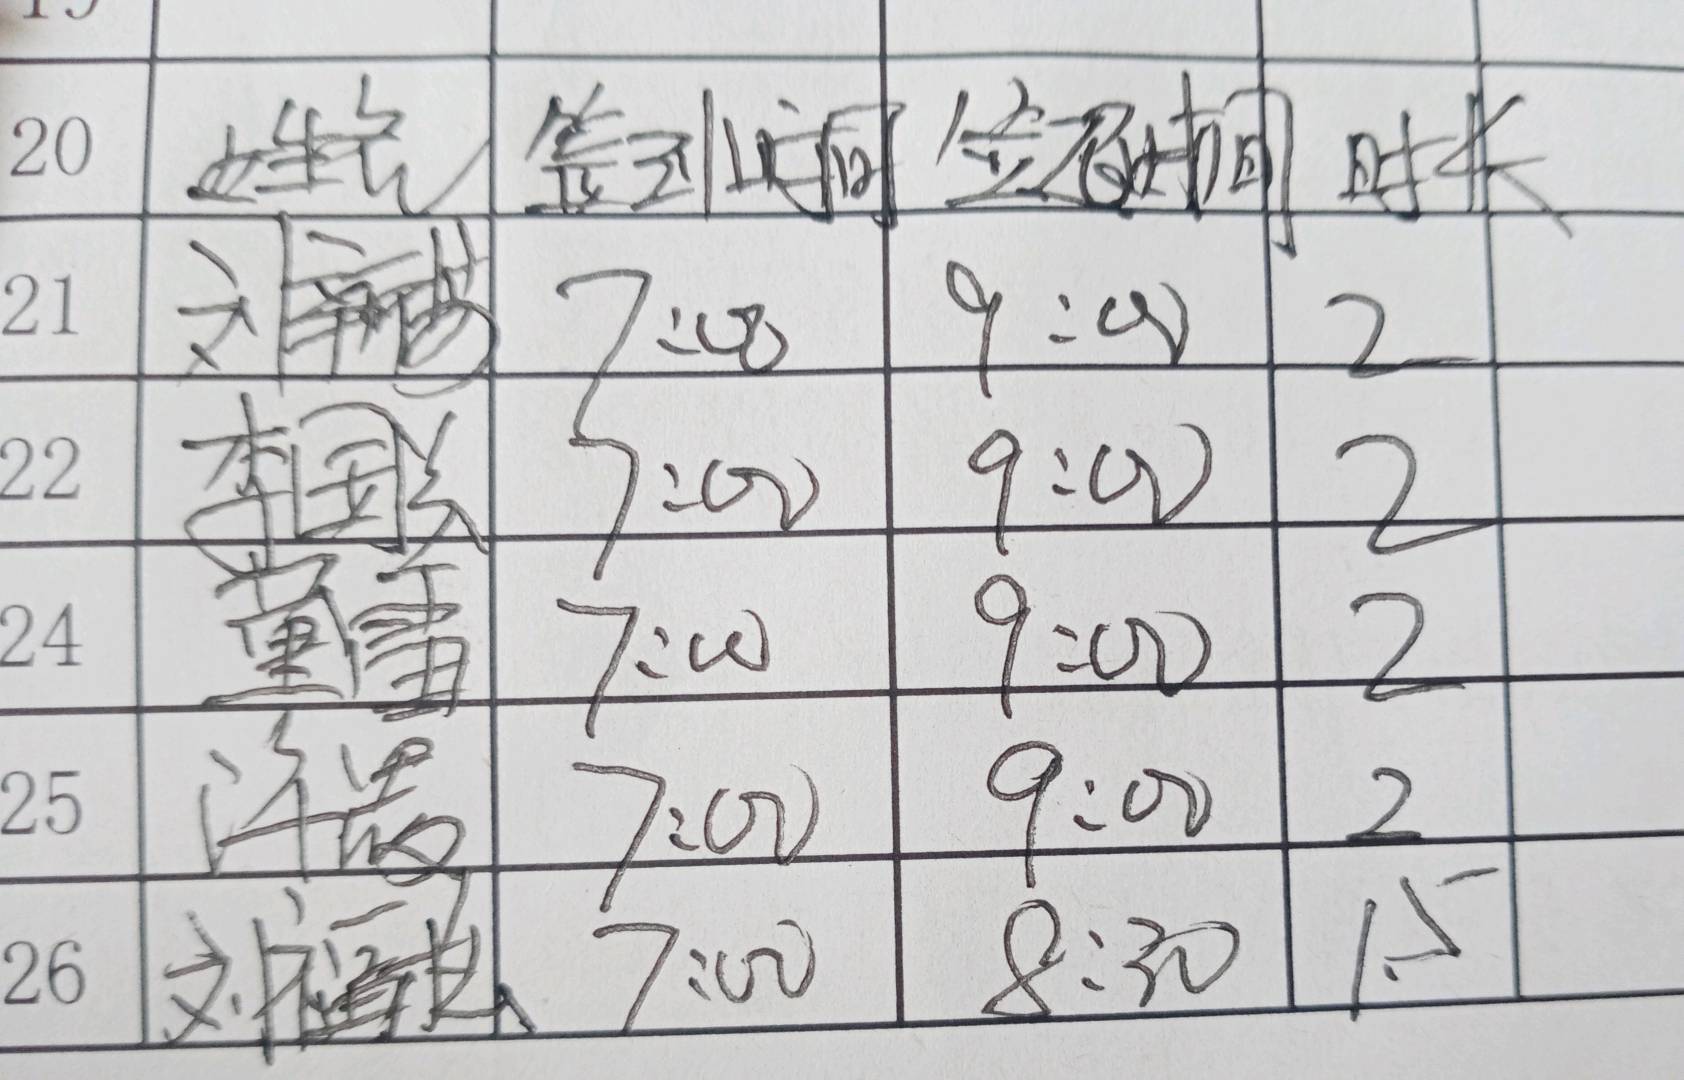 20 姓名 签到时间 签退时间 时长
21 刘 7:00 9:00 2
22 李国 7:00 9:00 2
24 董雷 7:00 9:00 2
25 许 7:00 9:00 2
26 刘 7:00 8:30 1.5